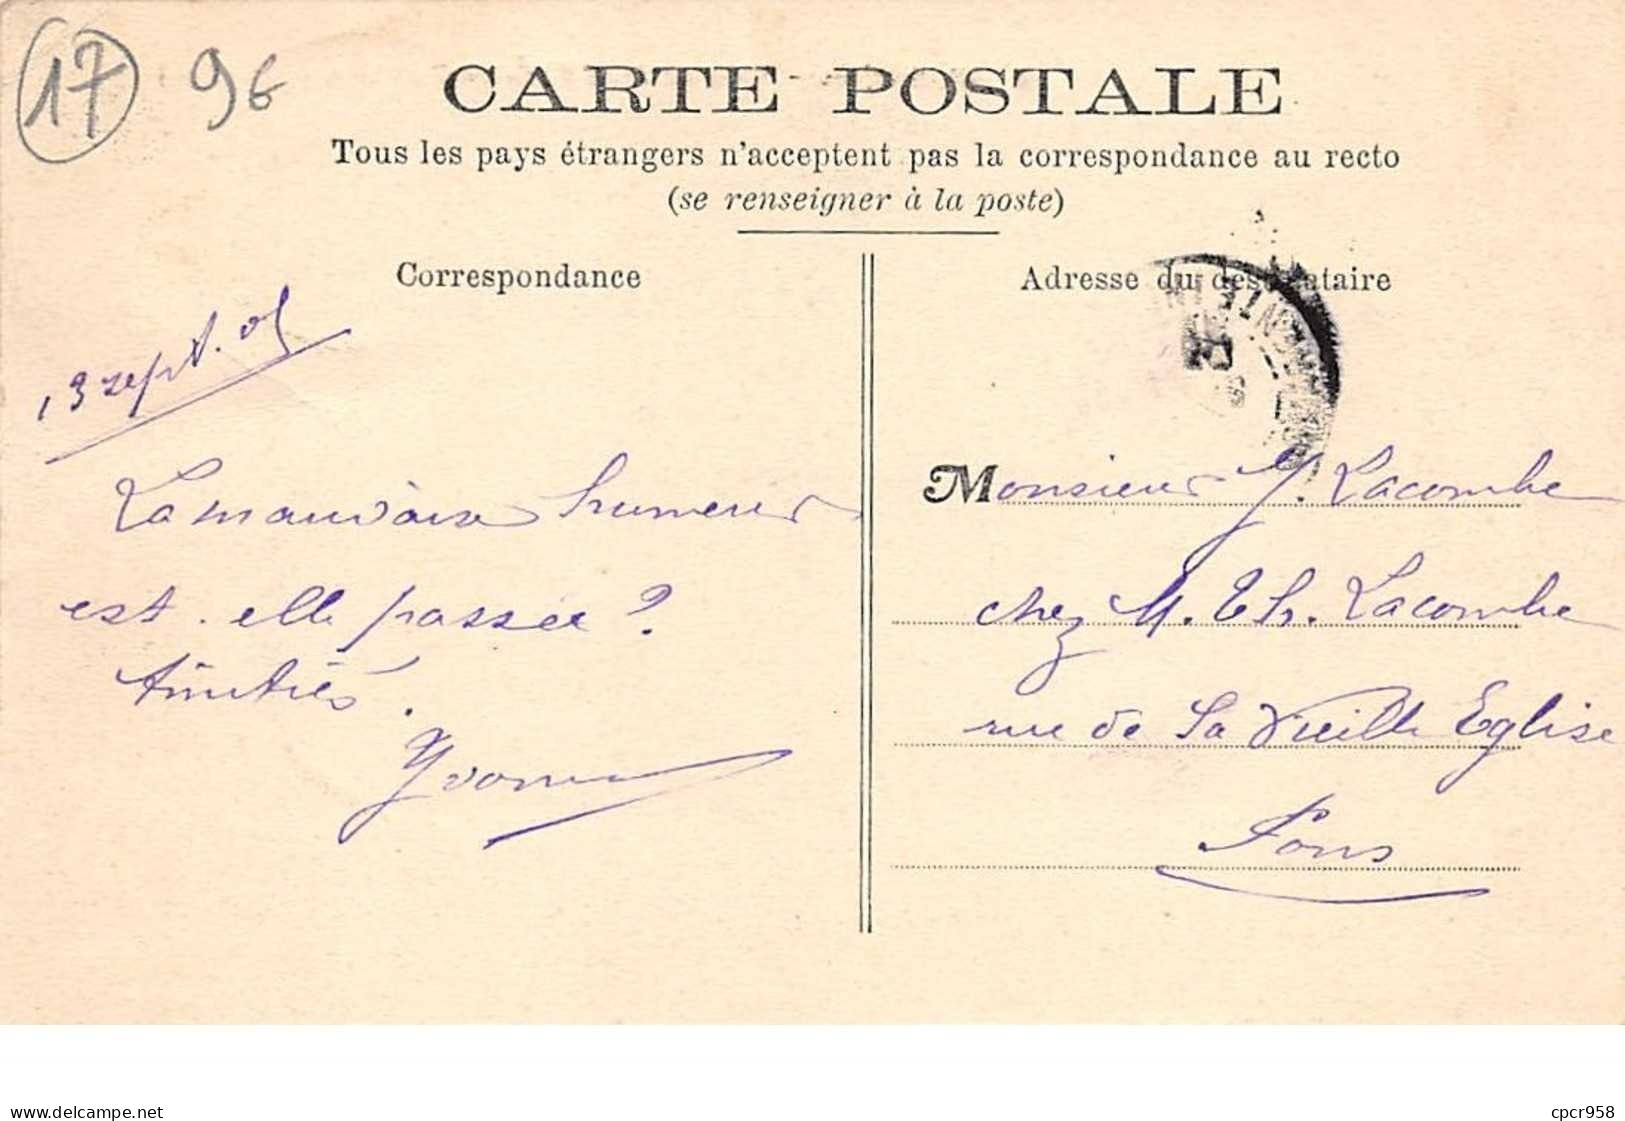 17 96
CARTE POSTALE
Tous les pays étrangers n'acceptent pas la correspondance au recto
(se renseigner à la poste)
Correspondance
13 sept. 05
La mauvaise humeur
est-elle passée ?
Amitiés.
Yvonne
Adresse du destinataire
Monsieur Y. Lacombe
chez M. Th. Lacombe
rue de la Vieille Eglise
Pons
www.delcampe.net
cpcr958